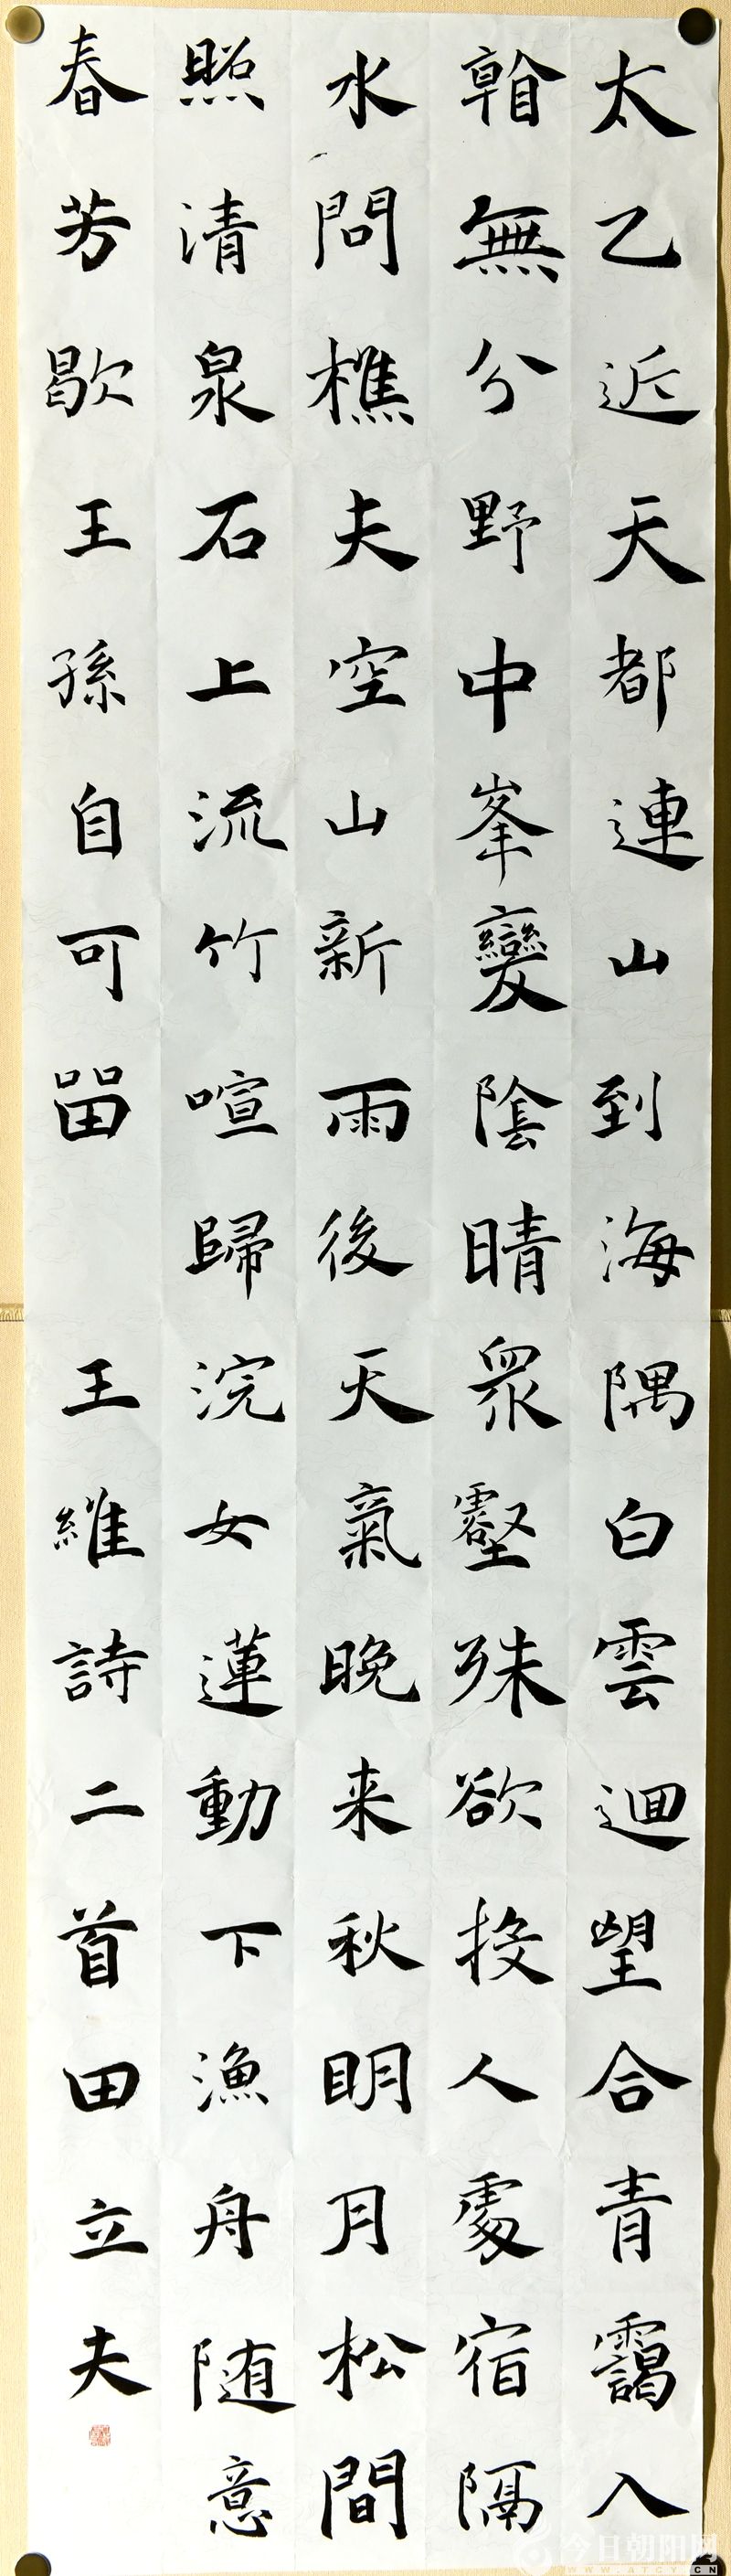 太乙近天都連山到海隅白雲迴望合青靄入
看無分野中峯變陰晴衆壑殊欲投人處宿隔
水問樵夫空山新雨後天氣晚来秋明月松間
照清泉石上流竹喧歸浣女蓮動下漁舟随意
春芳歇王孫自可留 王維詩二首田立夫
今日朝阳网